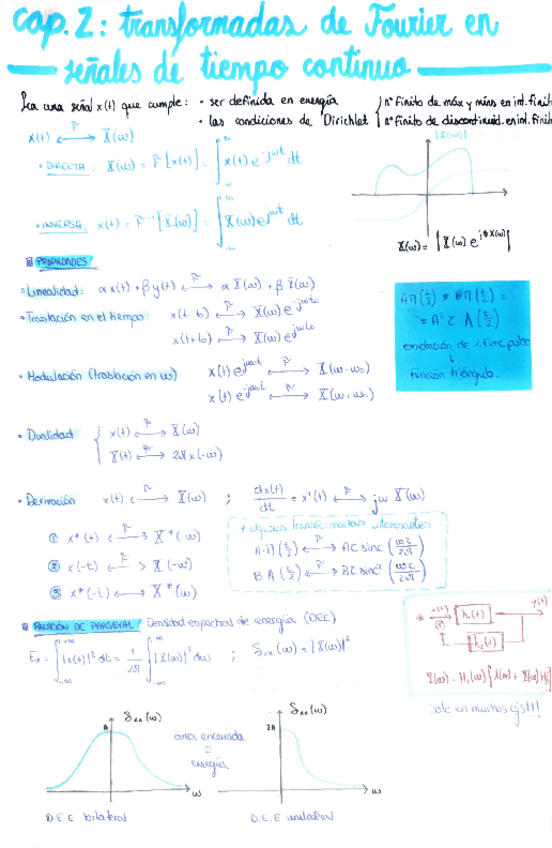 cap. 2: transformadas de Fourier en
señales de tiempo continuo
Sea una señal x(t) que cumple: • ser definida en energía
• las condiciones de Dirichlet { nº finito de máx y mins en int. finit
nº finito de discontinuid. en int. finit
x(t) ⟷ X(ω)
|X(ω)|
• DIRECTA: X(ω) = F[x(t)] = ∫ x(t) e^-jωt dt
• INVERSA: x(t) = F⁻¹[X(ω)] = ∫ X(ω) e^jωt dt
X(ω) = |X(ω) e^jφX(ω)|
PROPIEDADES
• Linealidad: αx(t) + βy(t) ⟷ αX(ω) + βY(ω)
• Traslación en el tiempo: x(t-to) ⟷ X(ω) e^-jωto
x(t+to) ⟷ X(ω) e^jωto
AΠ(t/τ) * AΠ(t/τ) =
= A²τ Λ(t/τ)
convolución de 2 func pulso
↓
función triángulo.
• Modulación (traslación en ω) x(t) e^jωot ⟷ X(ω-ωo)
x(t) e^-jωot ⟷ X(ω+ωo)
• Dualidad { x(t) ⟷ X(ω)
X(t) ⟷ 2πx(-ω)
• Derivación x(t) ⟷ X(ω) ; dx(t)/dt = x'(t) ⟷ jω X(ω)
① x*(t) ⟷ X*(-ω)
② x(-t) ⟷ X(-ω)
③ x*(-t) ⟷ X*(ω)
+ algunas transformadas interesantes
A·Π(t/τ) ⟷ Aτ sinc(ωτ/2π)
B Λ(t/τ) ⟷ Bτ sinc²(ωτ/2π)
RELACIÓN DE PARSEVAL Densidad espectral de energía (DEE)
Ex = ∫ |x(t)|² dt = 1/2π ∫ |X(ω)|² dω ; Sxx(ω) = |X(ω)|²
* x(t) h₁(t) y(t)
h₂(t)
Sale en muchos ejs!!!
Sxx(ω)
A
ω
área encerrada
=
energía
Sxx(ω)
2A
ω
D.E.E bilateral
D.E.E unilateral